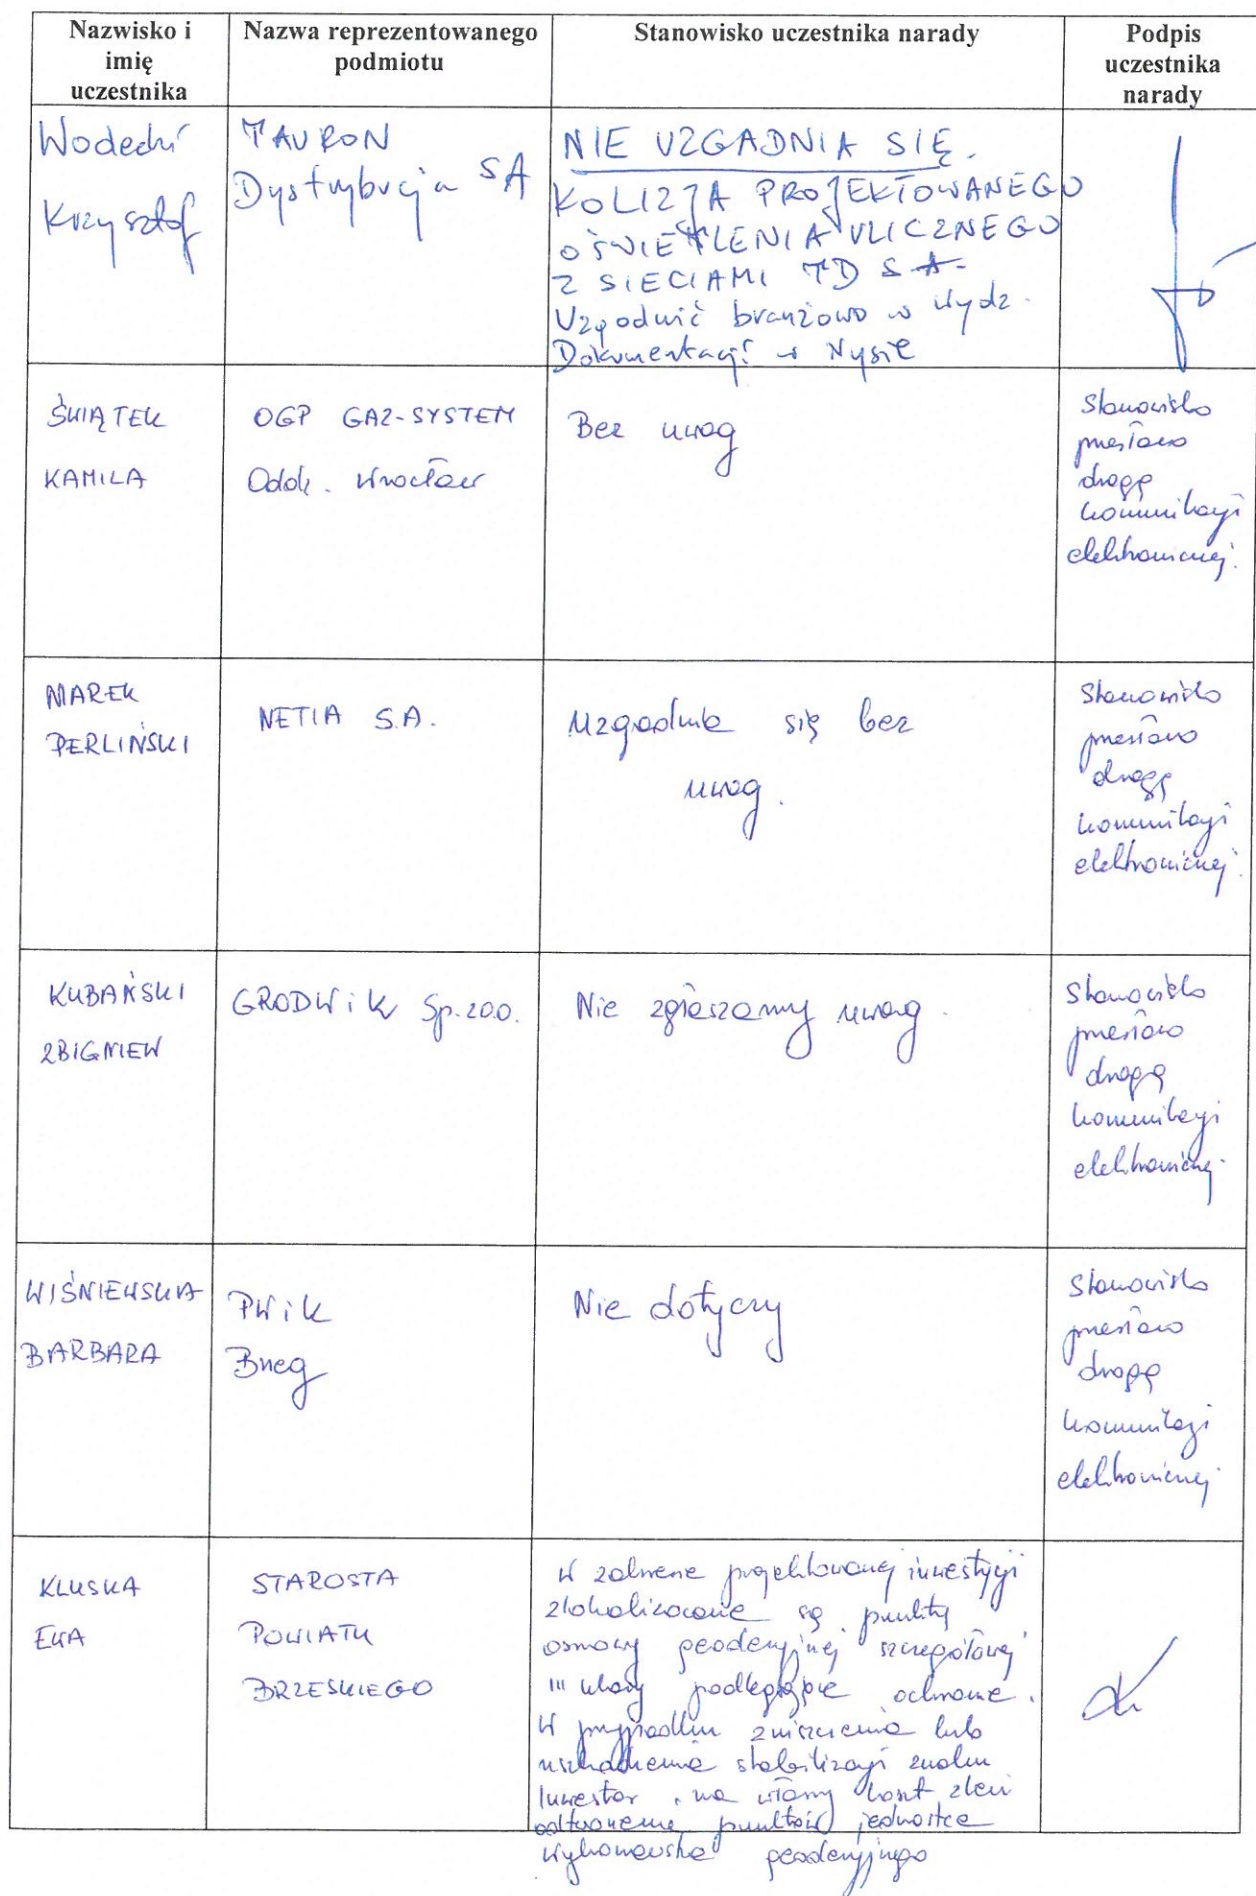 Nazwisko i
imię
uczestnika
Nazwa reprezentowanego
podmiotu
Stanowisko uczestnika narady
Podpis
uczestnika
narady
Wodecki
Krzysztof
TAURON
Dystrybucja SA
NIE UZGADNIA SIĘ.
KOLIZJA PROJEKTOWANEGO
OŚWIETLENIA ULICZNEGO
Z SIECIAMI TD S A.
Uzgodnić branżowo w Wydz.
Dokumentacji w Nysie
ŚWIĄTEK
KAMILA
OGP GAZ-SYSTEM
Oddz. Wrocław
Bez uwag
Stanowisko
przesłano
drogą
komunikacji
elektronicznej.
MAREK
PERLIŃSKI
NETIA S.A.
Uzgadnia się bez
uwag.
Stanowisko
przesłano
drogą
komunikacji
elektronicznej.
KUBAŃSKI
ZBIGNIEW
GRODWiK Sp. z o.o.
Nie zgłaszamy uwag.
Stanowisko
przesłano
drogą
komunikacji
elektronicznej.
WIŚNIEWSKA
BARBARA
PWiK
Brzeg
Nie dotyczy
Stanowisko
przesłano
drogą
komunikacji
elektronicznej
KLUSKA
EWA
STAROSTA
POWIATU
BRZESKIEGO
W zakresie projektowanej inwestycji
zlokalizowane są punkty
osnowy geodezyjnej szczegółowej
III klasy podlegające ochronie.
W przypadku zniszczenia lub
uszkodzenia stabilizacji znaku
Inwestor, na własny koszt zleci
odtworzenie punktów jednostce
wykonawstwa geodezyjnego